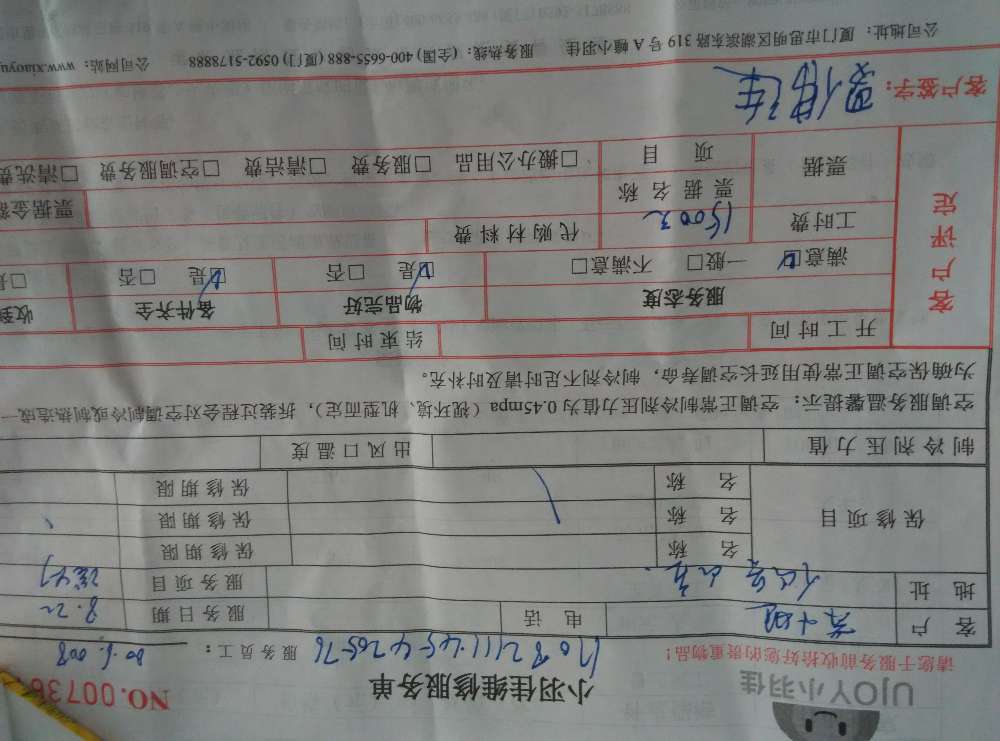 UJOY小羽佳
小羽佳维修服务单
NO.00736
请您于服务前收拾好您的贵重物品!
1708211145420576
服务员工:
客户
电话
服务日期
8.22
地址
服务项目
保修项目
名称
保修期限
名称
保修期限
名称
保修期限
制冷剂压力值
出风口温度
空调服务温馨提示: 空调正常制冷剂压力值为0.45mpa (视环境、机型而定), 拆装过程会对空调制冷或制热造成一
为确保空调正常使用延长空调寿命, 制冷剂不足时请及时补充。
客户评定
开工时间
结束时间
服务态度
物品完好
备件齐全
收到
满意☑ 一般□ 不满意□
☑是 □否
☑是 □否
□是
工时费
1500元
代购材料费
票据
票据名称
票据金额
项目
□搬办公用品 □服务费 □清洁费 □空调服务费 □清洗费
客户签字:
公司地址: 厦门市思明区湖滨东路 319 号 A 幢小羽佳 服务热线: (全国) 400-6655-888 (厦门) 0592-5178888 公司网站: www.xiaoyu